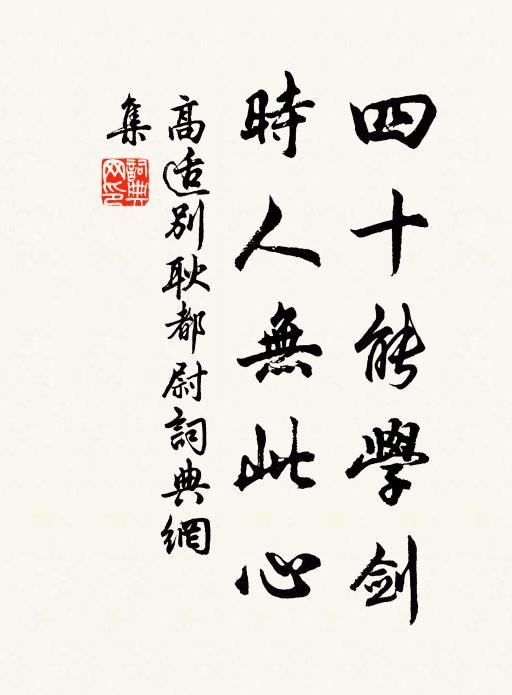 四十能學劍
時人無此心
高适別耿都尉詞典網
集
詞典
网印